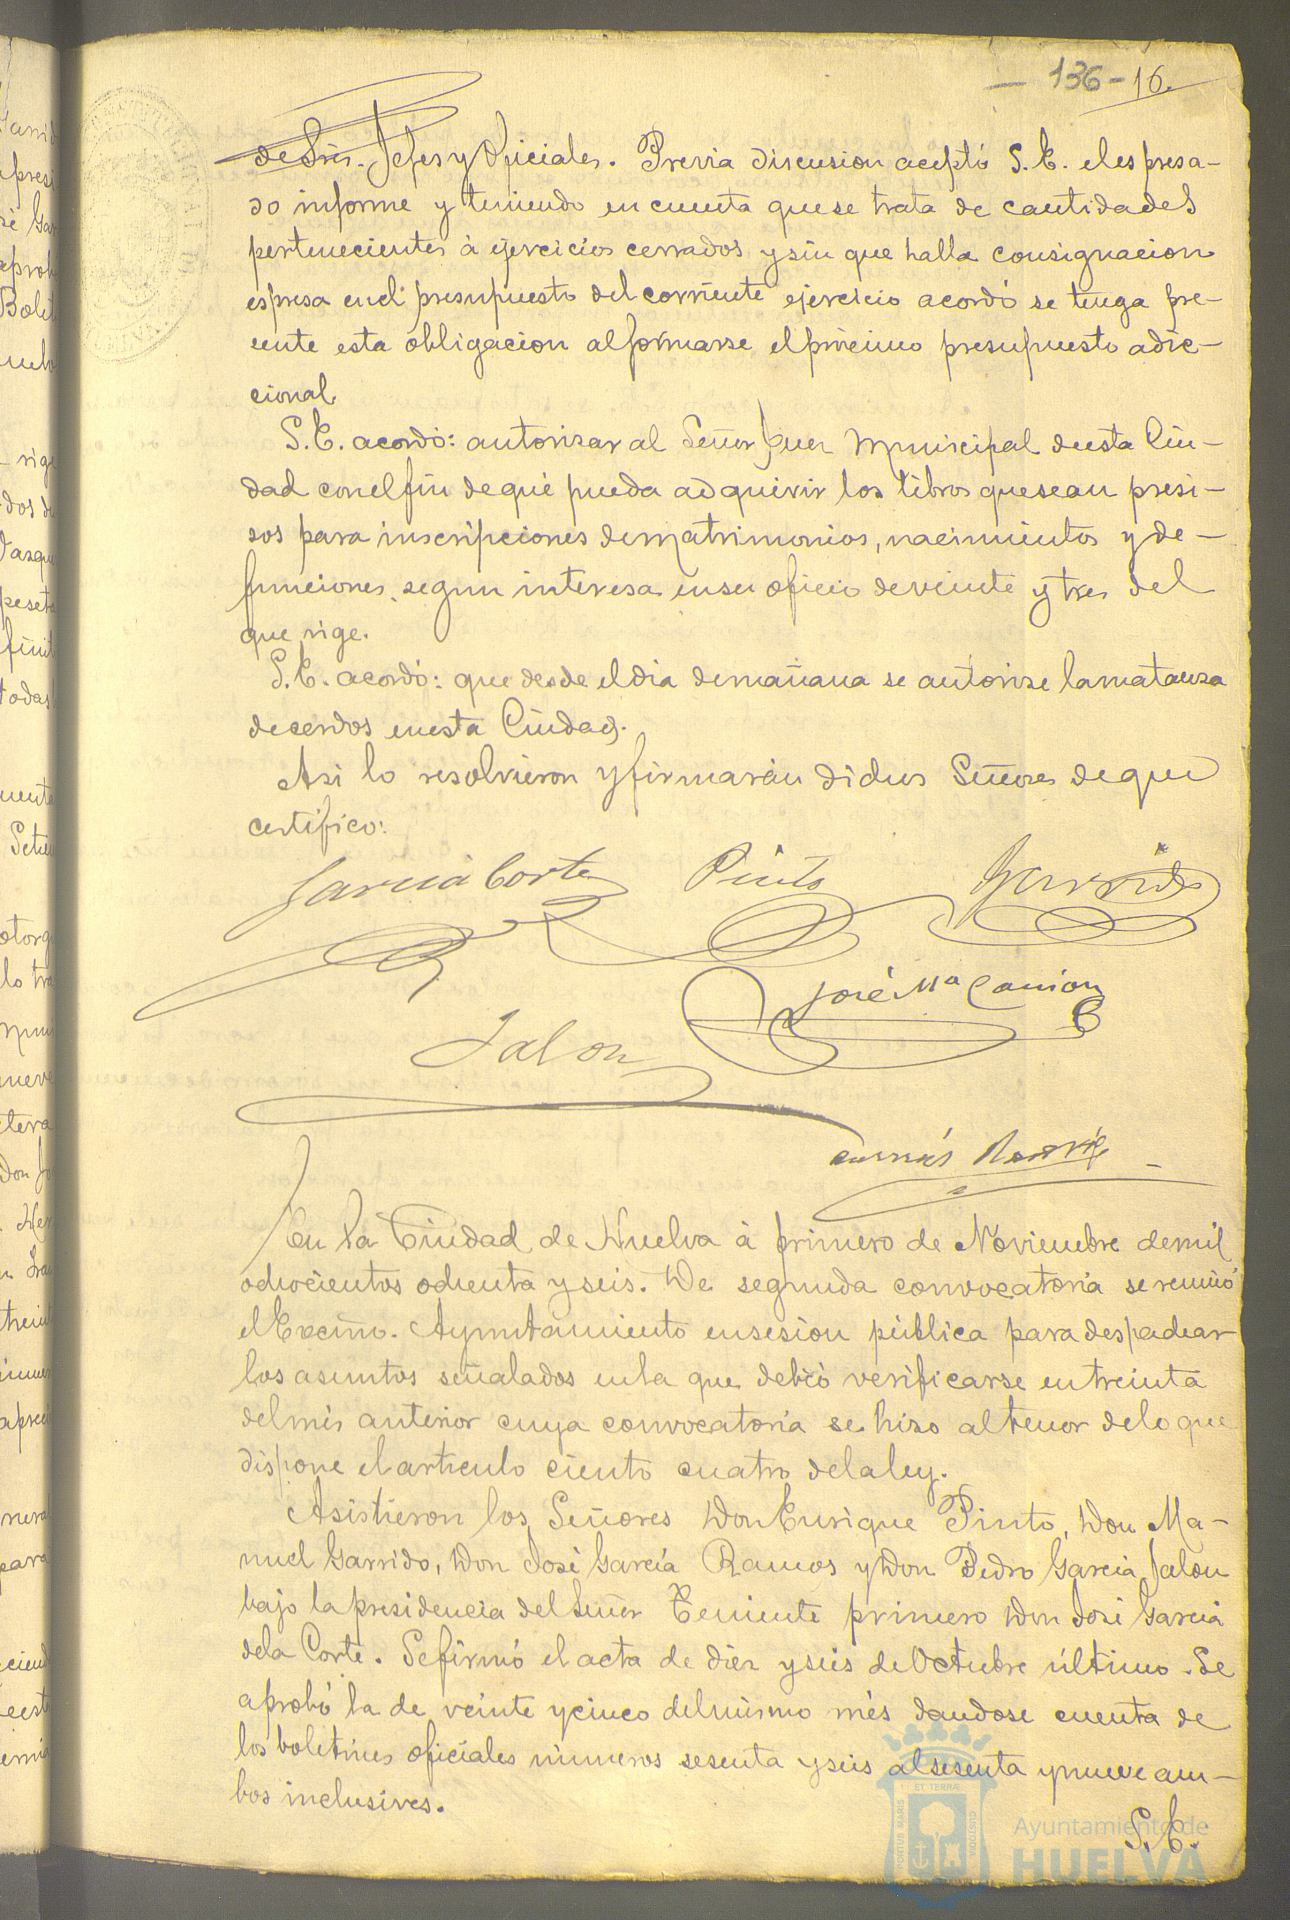 136 - 16.
de Sres. Jefes y Oficiales. Previa discusion aceptó S. E. el espresa-
do informe y teniendo en cuenta que se trata de cantidades
pertenecientes á ejercicios cerrados y sin que halla consignacion
espresa en el presupuesto del corriente ejercicio acordó se tenga pre-
sente esta obligacion al formarse el procimo presupuesto adic-
cional.
S. E. acordó: autorizar al Señor Juez Municipal de esta Ciu-
dad con el fin de qué pueda adquirir los libros que sean presi-
sos para inscripciones de matrimonios, nacimientos y de-
funciones, segun interesa en su oficio de veinte y tres del
que rige.
S. E. acordó: que desde el dia de mañana se autorize la matanza
de cerdos en esta Ciudad.
Asi lo resolvieron y firmarán dichos Señores de que
certifico:
García Corte Pinto Garrido
José Mª
Jalon
En la Ciudad de Huelva á primero de Noviembre de mil
ochocientos ochenta y seis. De segunda convocatoria se reunió
el Excmo. Ayuntamiento en sesion pública para despachar
los asuntos señalados en la que debió verificarse en treinta
del més anterior cuya convocatoria se hizo al tenor de lo que
dispone el articulo ciento cuatro de la ley.
Asistieron los Señores Don Enrique Pinto, Don Ma-
nuel Garrido, Don José García Ramos y Don Pedro Garcia Jalon
bajo la presidencia del Señor Teniente primero Don José Garcia
de la Corte. Se firmó el acta de diez y seis de Octubre último. Se
aprobó la de veinte y cinco del mismo més dandose cuenta de
los boletines oficiales números sesenta y seis al sesenta y nueve am-
bos inclusives.
S. E.
Ayuntamiento de
HUELVA